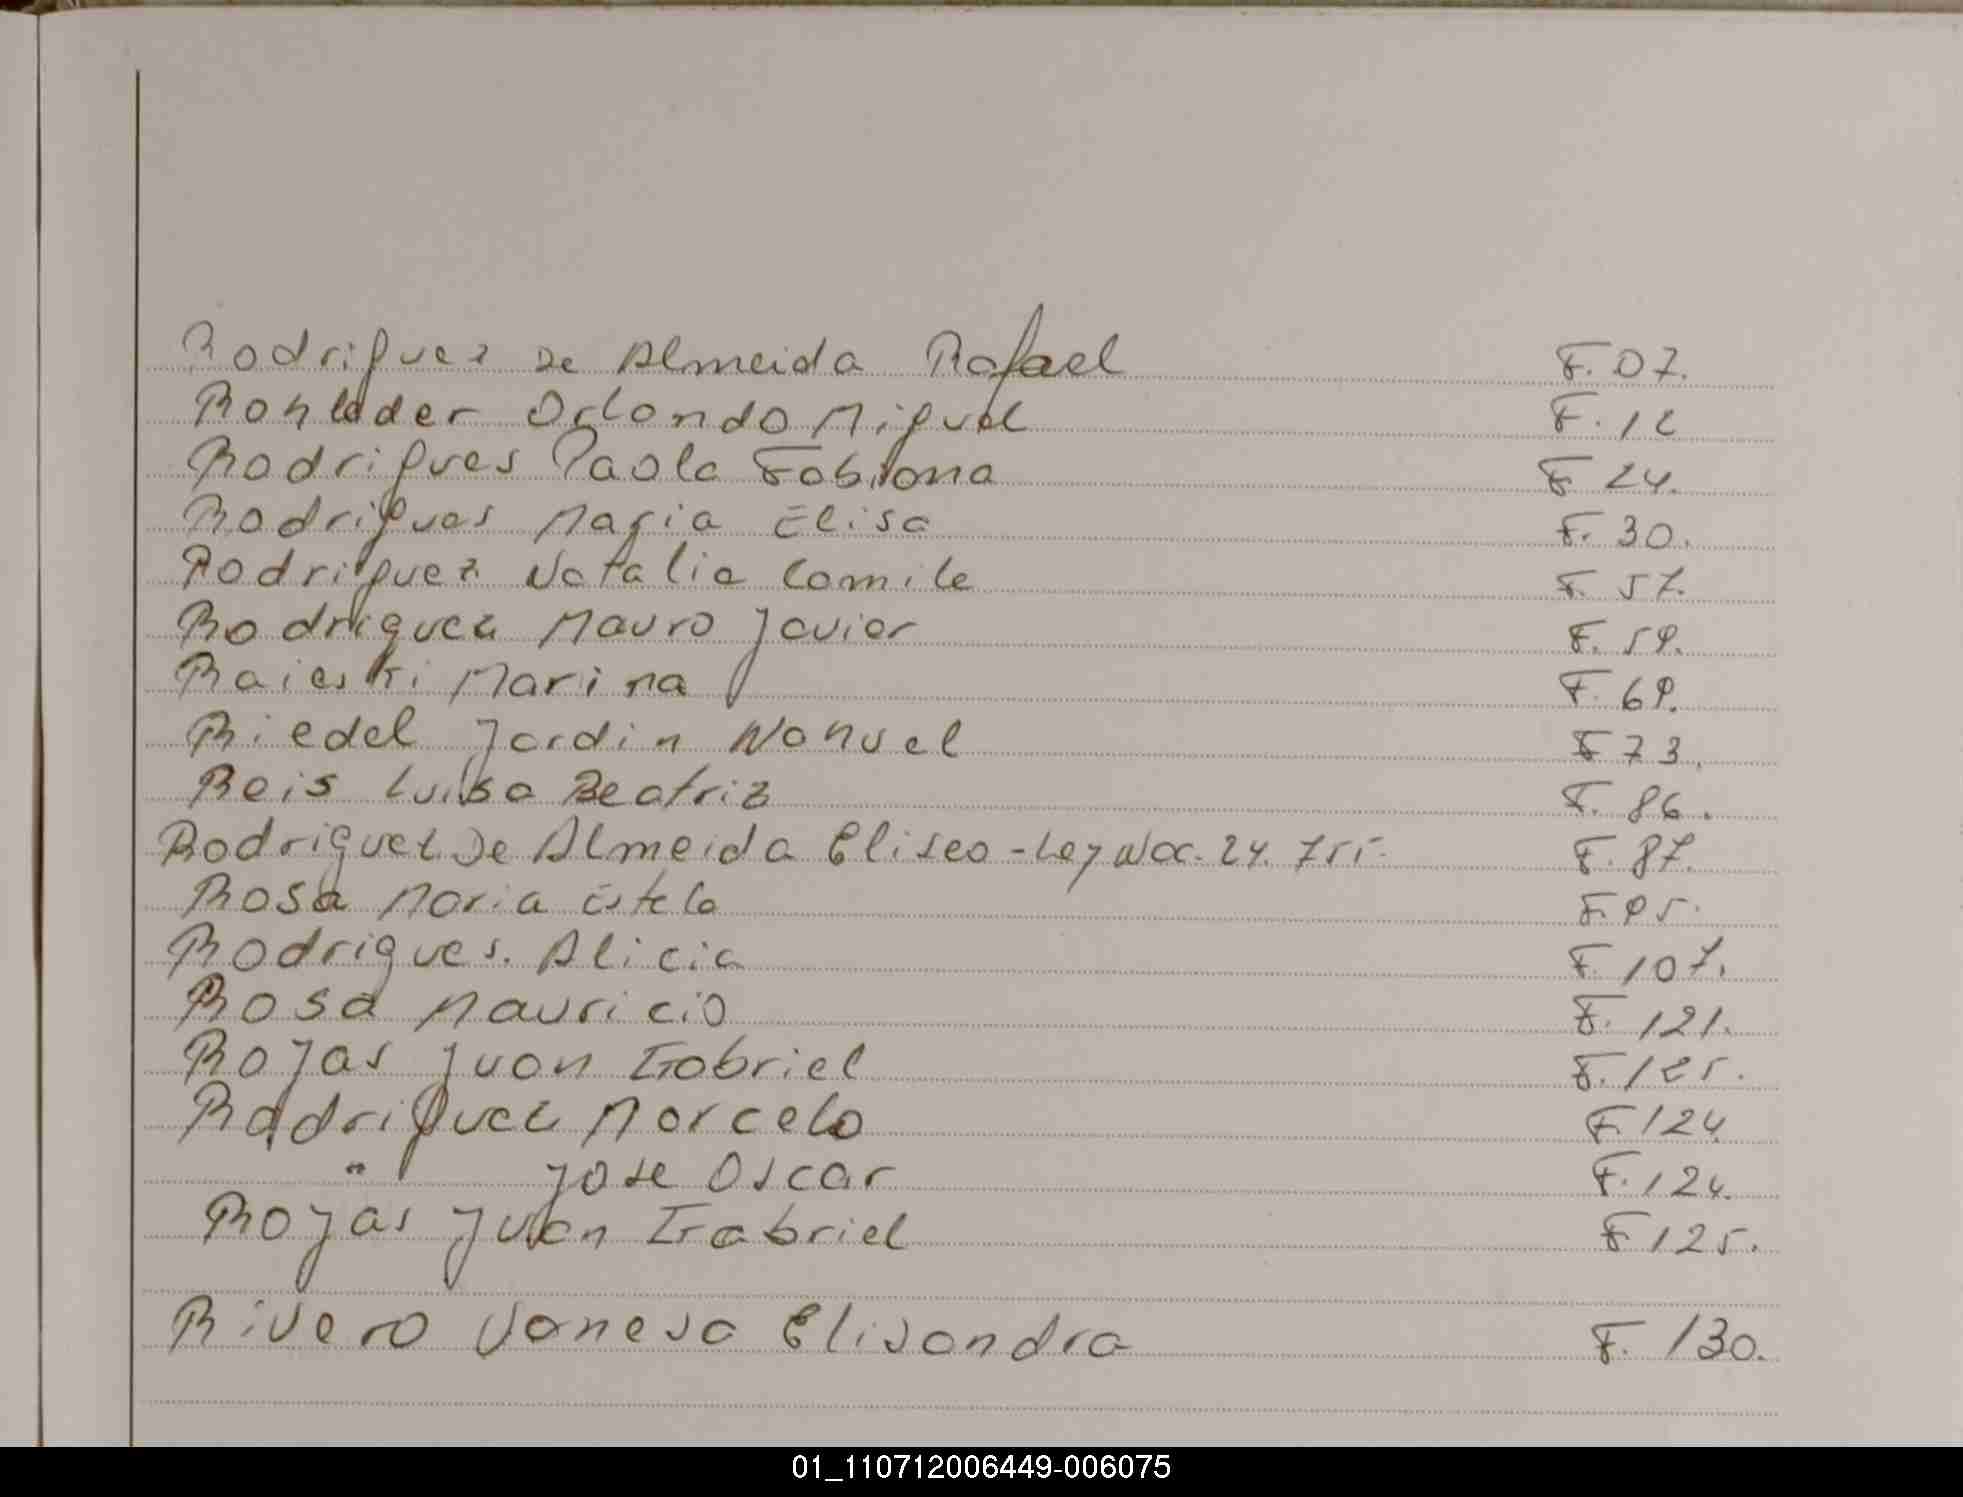 Rodriguez De Almeida Rafael F. 07.
Rohleder Orlando Miguel F. 12
Rodrigues Paola Fabiana F 24.
Rodrigues Maria Elisa F. 30.
Rodriguez Natalia Camile F. 57.
Rodriguez Mauro Javier F. 59.
Raieski Marina F. 69.
Riedel Jardin Nahuel F 73.
Reis Luisa Beatriz F. 86.
Rodriguez De Almeida Eliseo - Ley Nac. 24. 755. F. 87.
Rosa Maria Estela F. 95.
Rodrigues. Alicia F. 107.
Rosa Mauricio F. 121.
Rojas Juan Gabriel F. 125.
Rodriguez Marcelo F. 124
" Jose Oscar F. 124.
Rojas Juan Gabriel F 125.
Rivero Vanesa Elisandra F. 130.
01_110712006449-006075